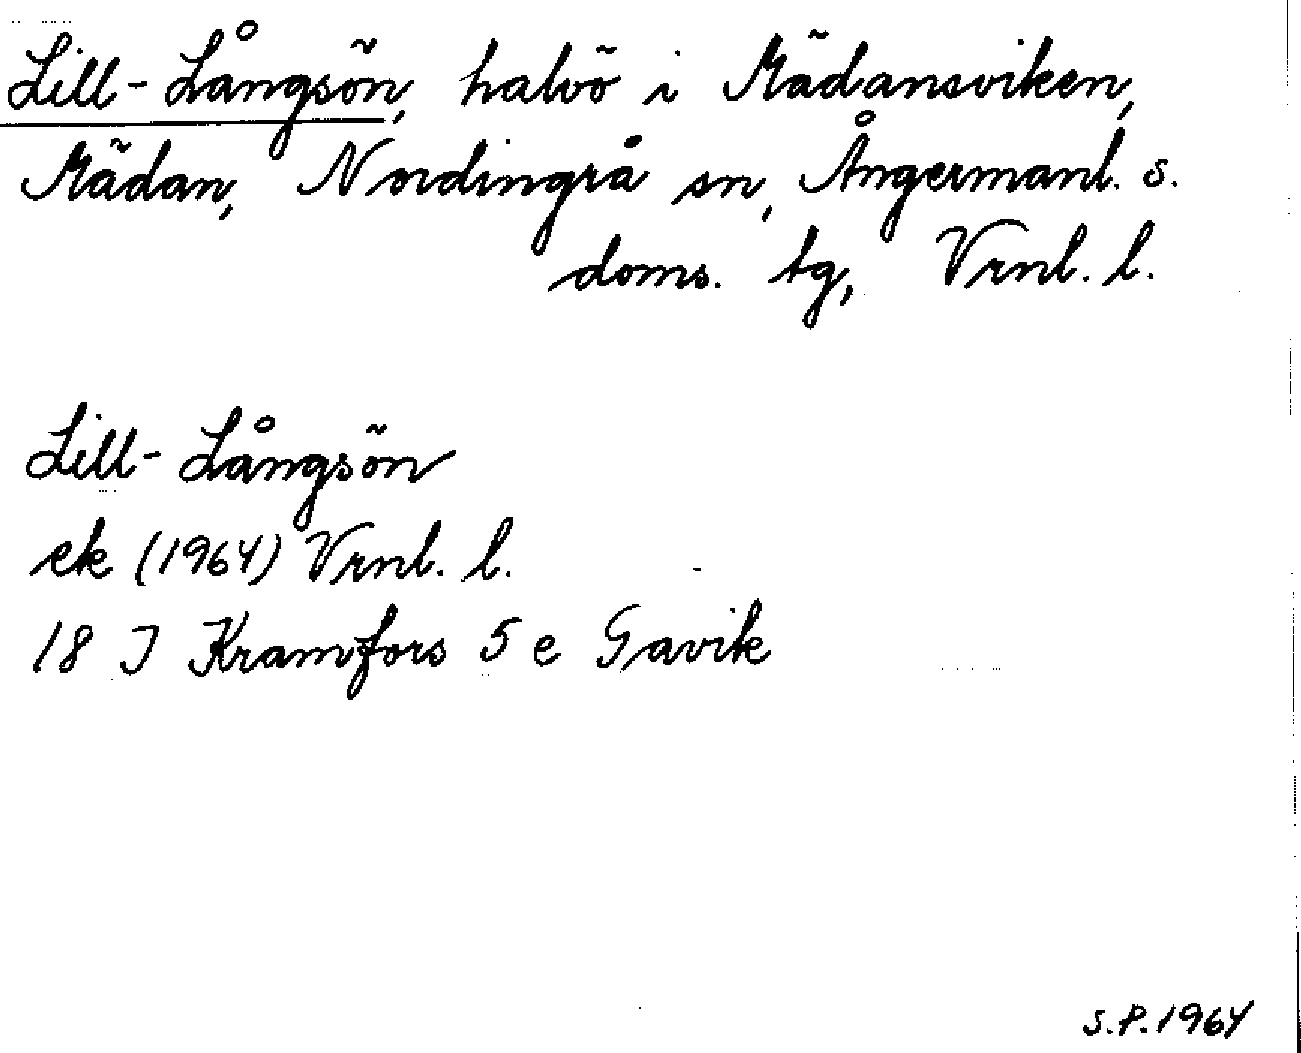 Lill-Långsön, halvö i Mädansviken,
Mädan, Nordingrå sn, Ångermanl. s.
doms. tg, Vrnl. l.
Lill-Långsön
ek (1964) Vrnl. l.
18 J Kramfors 5 e Gavik
S.P. 1964